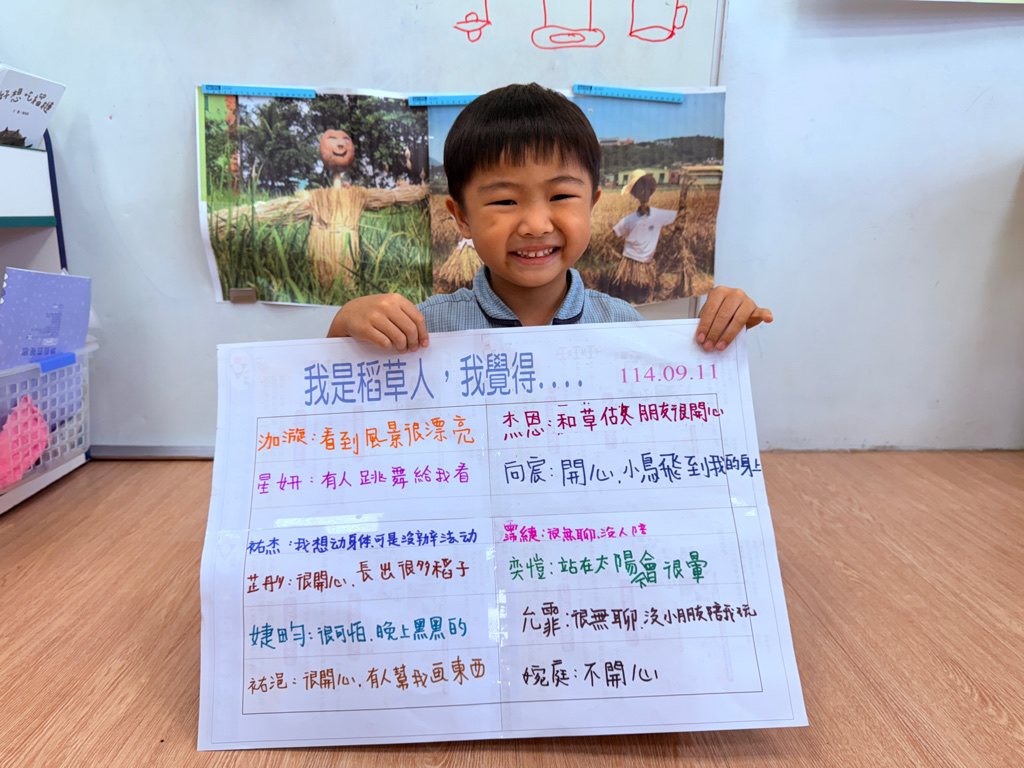 好想吃榴槤
我是稻草人，我覺得....
114.09.11
泇漩：看到風景很漂亮
星妍：有人跳舞給我看
祐杰：我想动身体可是沒辦法动
芷彤：很開心、長出很多稻子
婕畇：很可怕、晚上黑黑的
祐浥：很開心、有人幫我画東西
杰恩：和草估夂朋友很開心
向宸：開心、小鳥飛到我的身上
霈緁：很無聊、沒人陪
奕愷：站在太陽會很暈
允霏：很無聊、沒小朋友陪我玩
婉庭：不開心